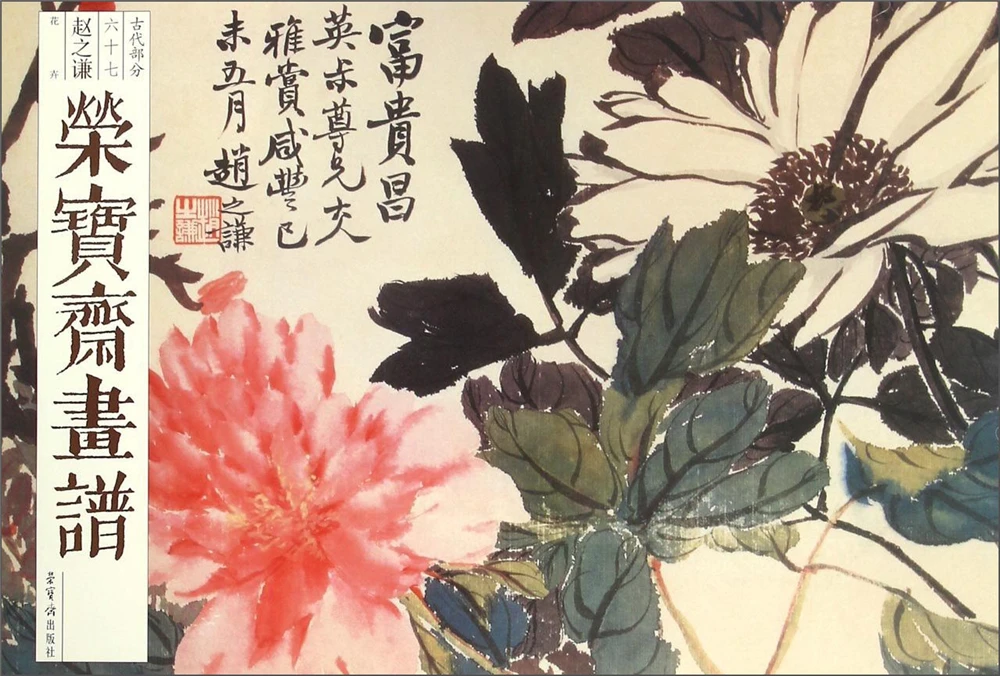 富貴昌
英尗尊兄大人
雅賞咸豐己
未五月趙之謙
趙之謙
古代部分
六十七
赵之谦
花卉
榮寶齋畫譜
荣宝斋出版社